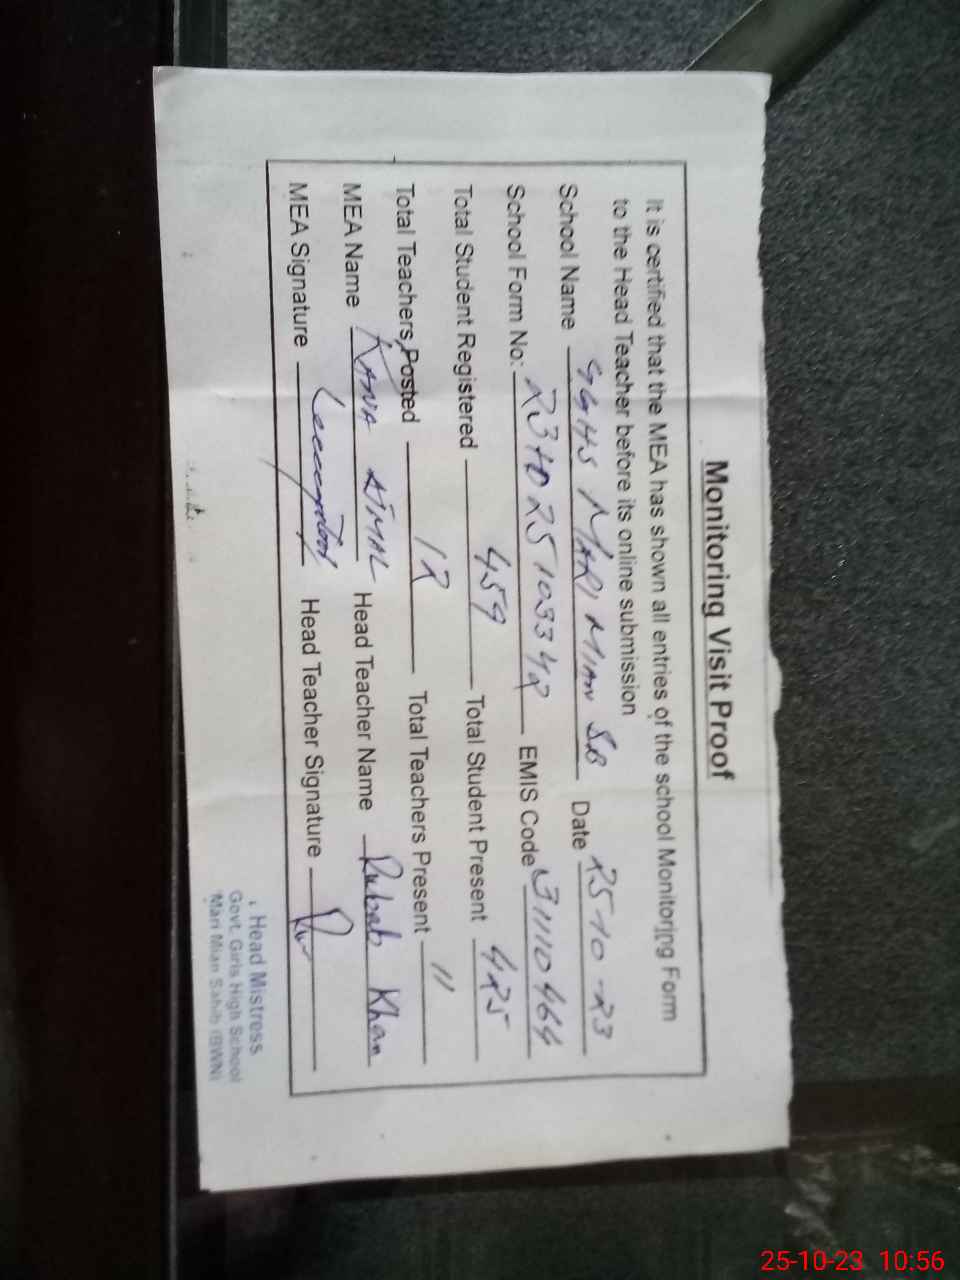 Monitoring Visit Proof
It is certified that the MEA has shown all entries of the school Monitoring Form
to the Head Teacher before its online submission
School Name GGHS MARI MIAN SB Date 25-10-23
School Form No: EMIS Code 31110464
Total Student Registered 459 Total Student Present 425
Total Teachers Posted 12 Total Teachers Present 11
MEA Name RANA AJMAL Head Teacher Name Rubab Khan
MEA Signature Head Teacher Signature
Head Mistress
Govt. Girls High School
Mari Mian Sahib (BWN)
25-10-23 10:56